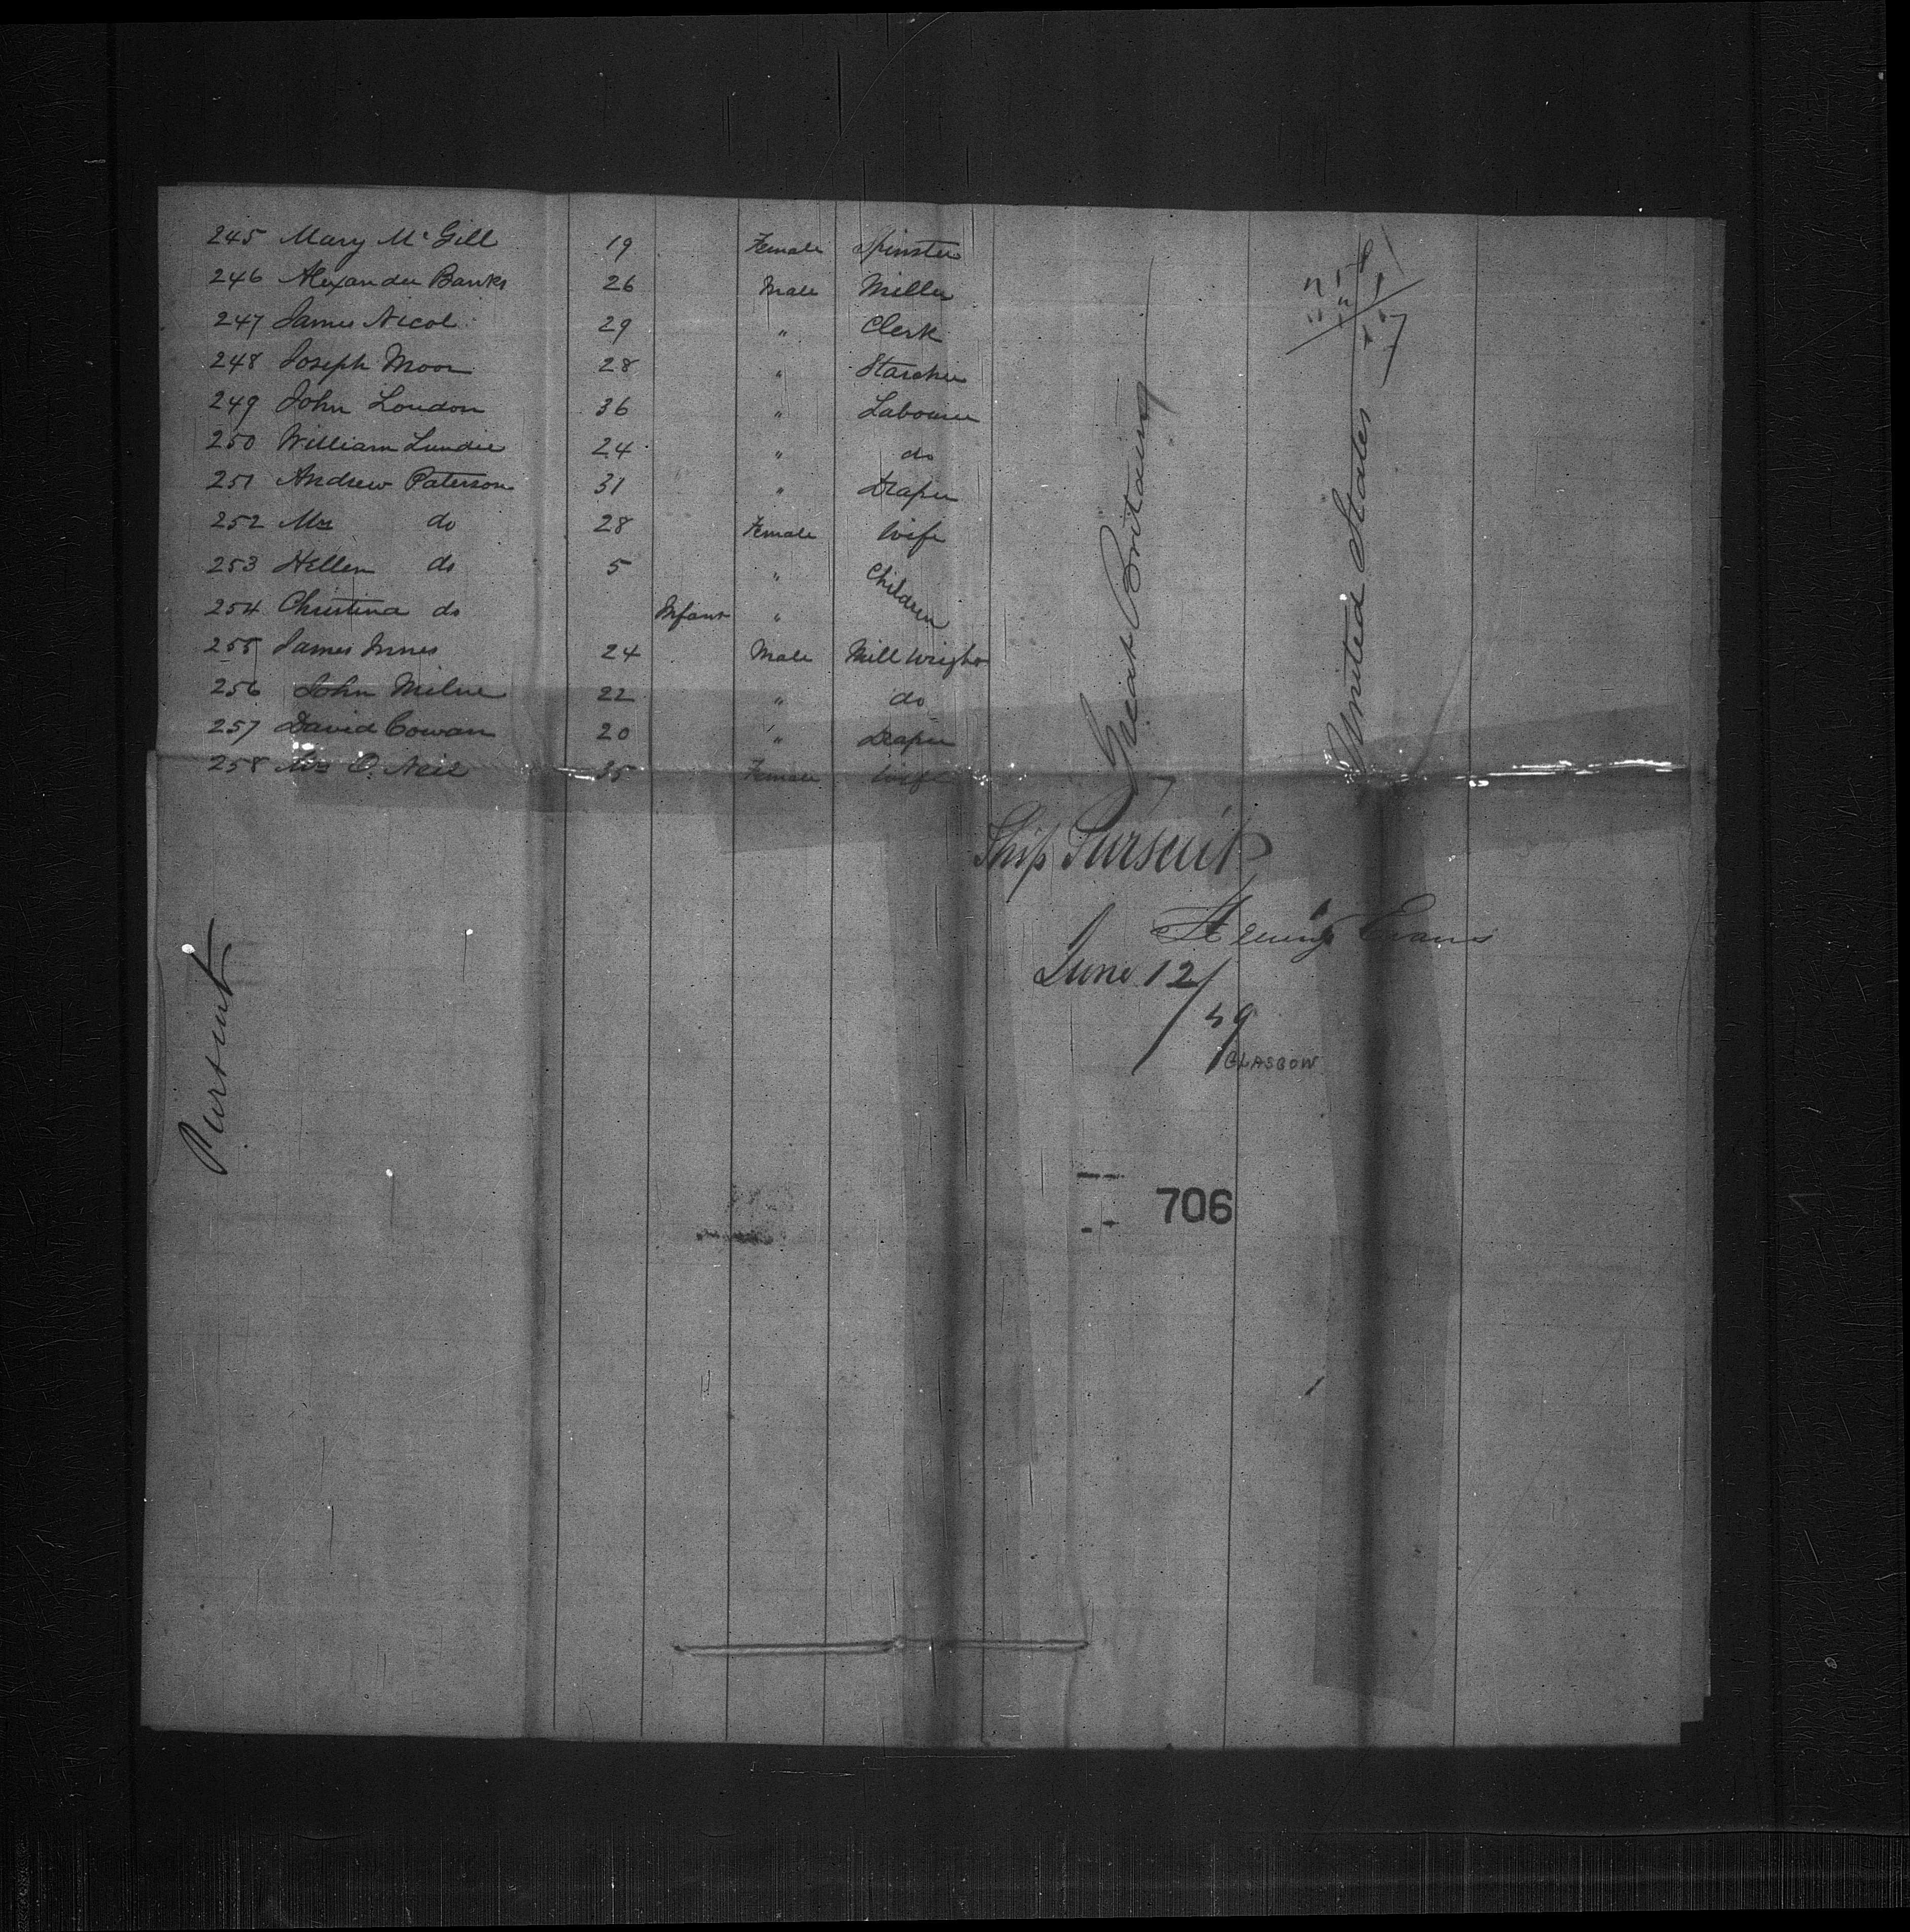 245 Mary McGill 19 Female Spinster
246 Alexander Banks 26 Male Miller
247 James Nicol 29 " Clerk
248 Joseph Moon 28 " Starcher
249 John London 36 " Labourer
250 William Lundie 24 " do
251 Andrew Paterson 31 " Draper
252 Mrs do 28 Female Wife
253 Hellen do 5 " Children
254 Christina do Infant "
255 James Innes 24 Male Mill Wright
256 John Milne 22 " do
257 David Cowan 20 " Draper
258 Mrs O. Neil 35 Female Wife
Great Britain
United States
Ship Pursuit
Evans
June 12/
GLASGOW
Pursuit
706